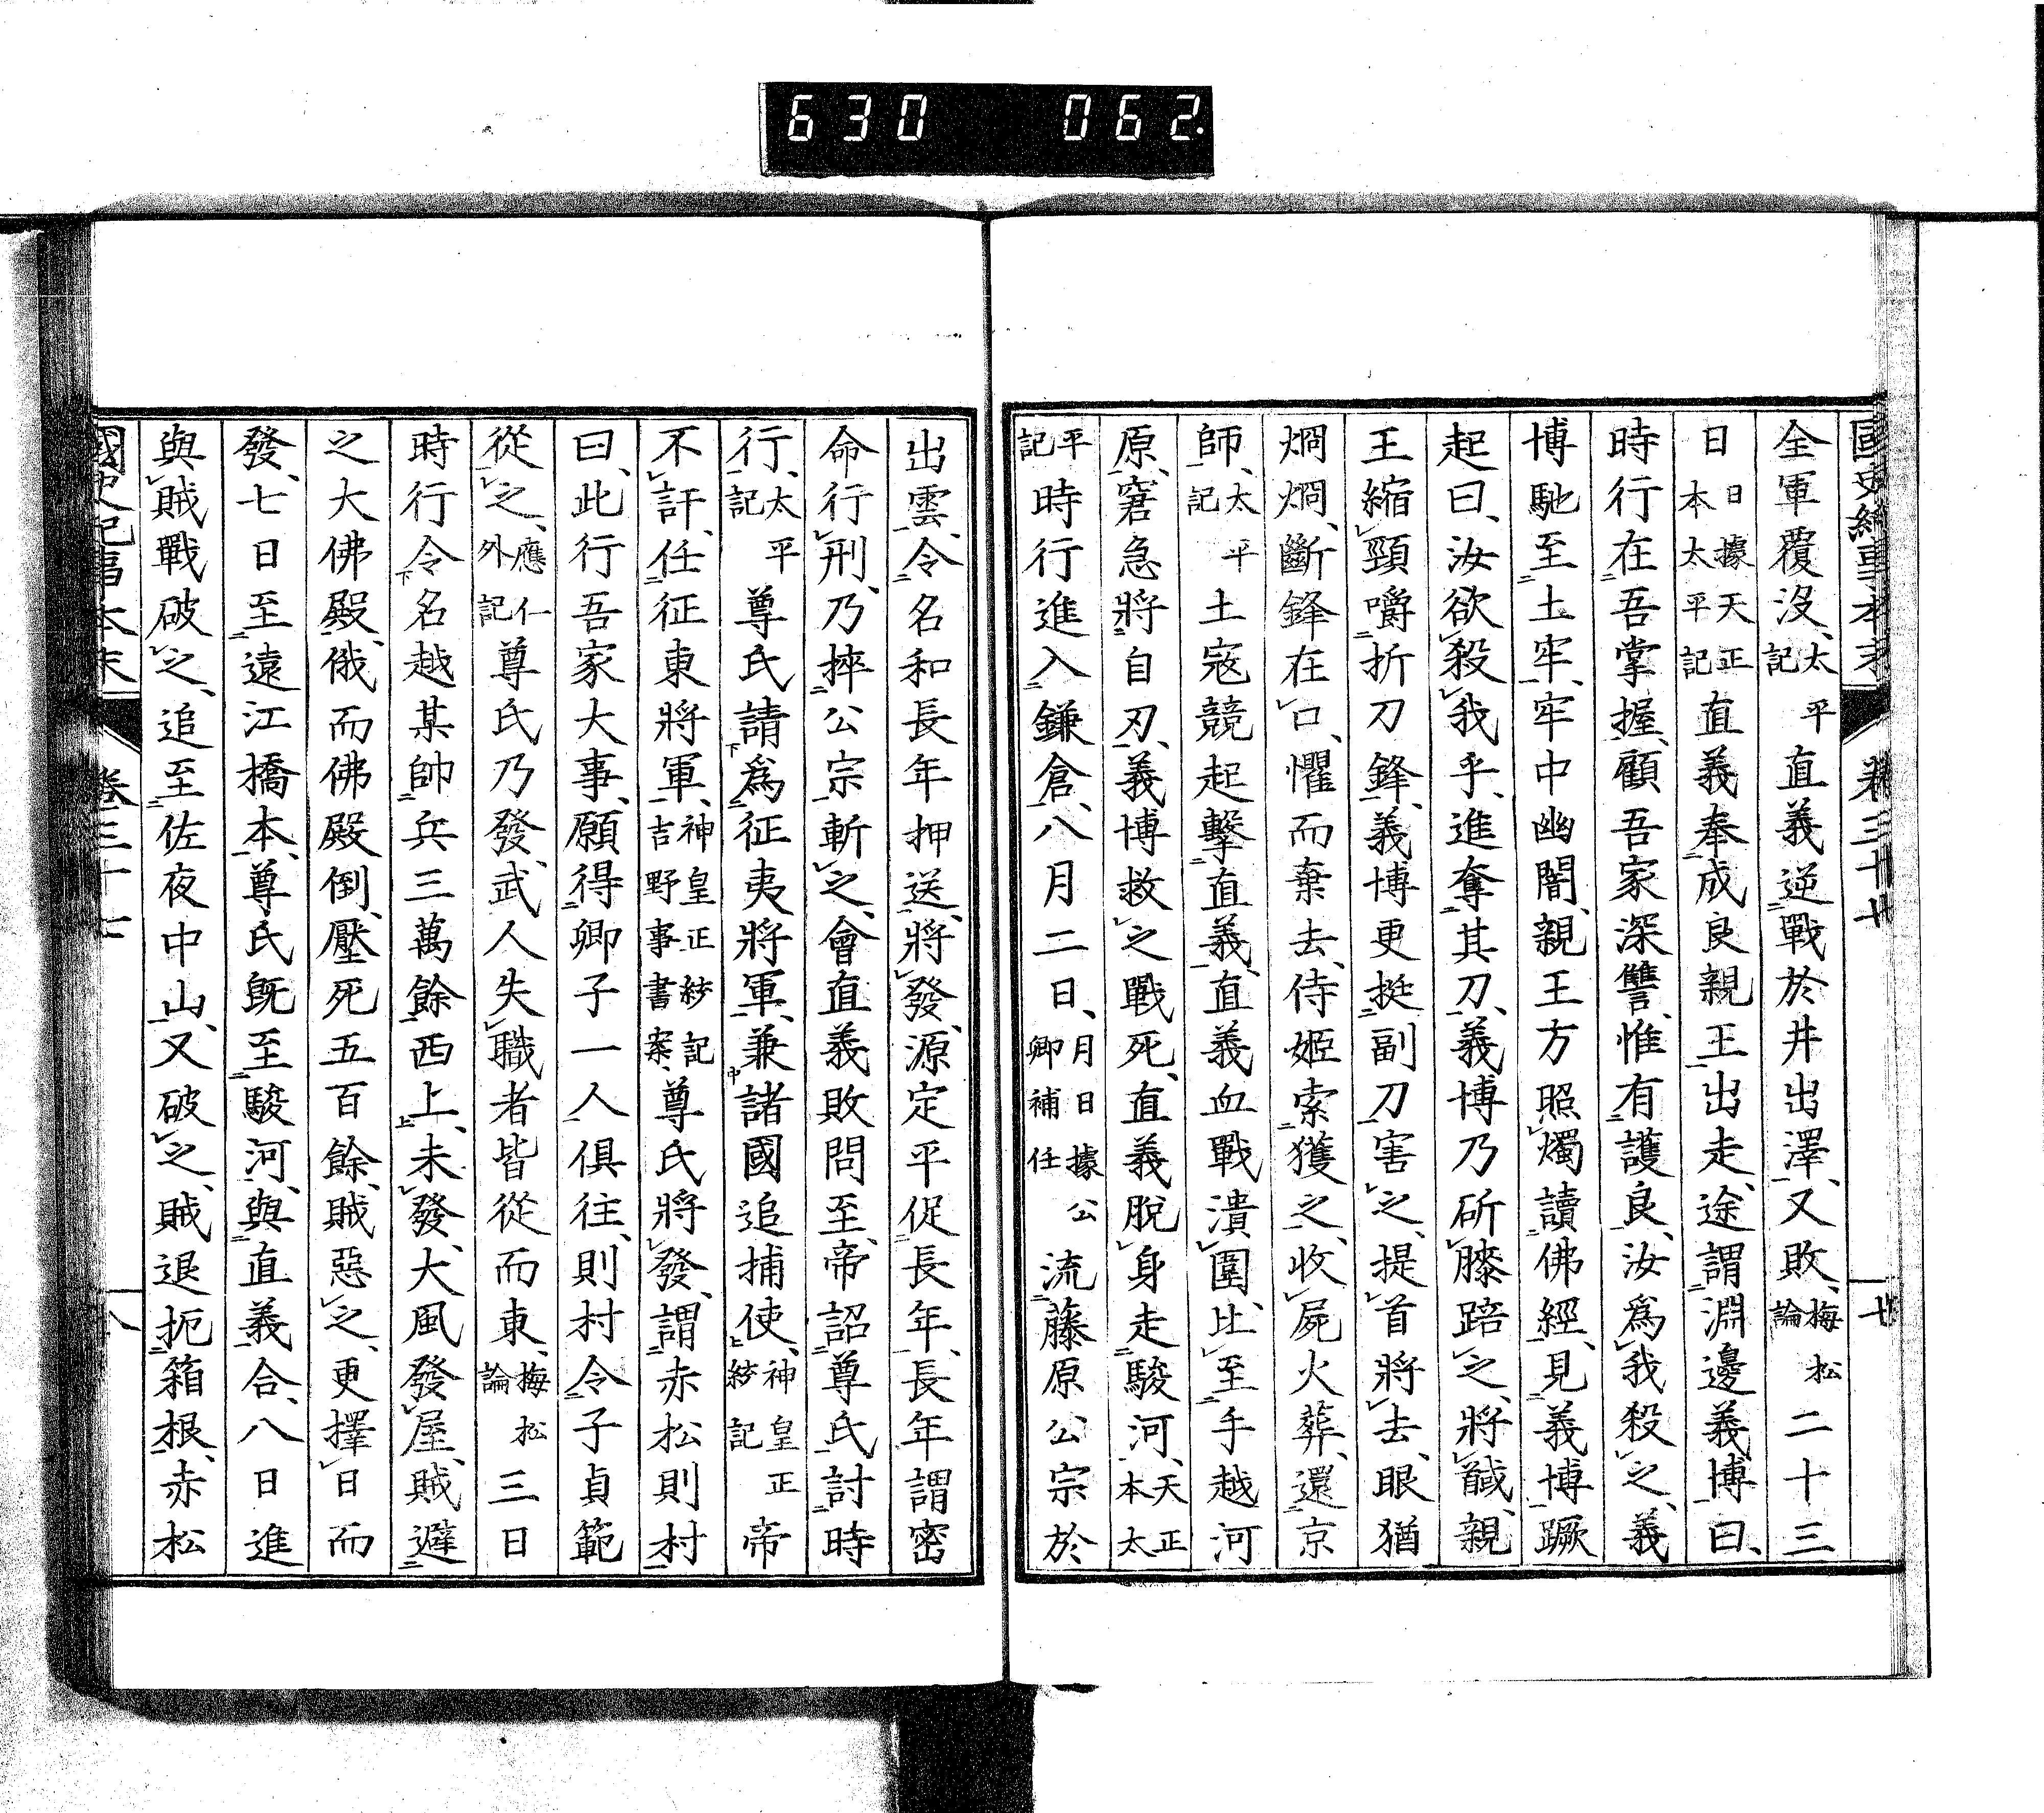 630 062
國史紀事本末 卷三十七 七
全軍覆沒、太平記直義逆戰於井出澤、又敗、梅松論二十三
日日本據天正太平記直義奉成良親王出走、途謂淵邊義博曰、
時行在吾掌握、顧吾家深讐、惟有護良、汝爲我殺之、義
博馳至土牢、牢中幽闇、親王方照燭讀佛經、見義博蹶
起曰、汝欲殺我乎、進奪其刀、義博乃斫膝踣之、將馘、親
王縮頸嚼折刀鋒、義博更挺副刀害之、提首將去、眼猶
烱烱、斷鋒在口、懼而棄去、侍姬索獲之、收屍火葬、還京
師、太平記土寇競起擊直義、直義血戰潰圍、比至手越河
原、窘急將自刃、義博救之戰死、直義脫身走駿河、天正本太
平記時行進入鎌倉、八月二日、月日據公卿補任流藤原公宗於
出雲、令名和長年押送、將發、源定平促長年、長年謂密
命行刑、乃捽公宗斬之、會直義敗問至、帝詔尊氏討時
行、太平記尊氏請爲征夷將軍、兼諸國追捕使、神皇正統記帝
不許、任征東將軍、神皇正統記吉野事書案、尊氏將發、謂赤松則村
曰、此行吾家大事、願得卿子一人俱往、則村令子貞範
從之、應仁外記尊氏乃發、武人失職者皆從而東、梅松論三日
時行令名越某帥兵三萬餘西上、未發、大風發屋、賊避
之大佛殿、俄而佛殿倒、壓死五百餘、賊惡之、更擇日而
發、七日至遠江橋本、尊氏既至駿河、與直義合、八日進
與賊戰破之、追至佐夜中山、又破之、賊退扼箱根、赤松
國史紀事本末 卷三十七 八